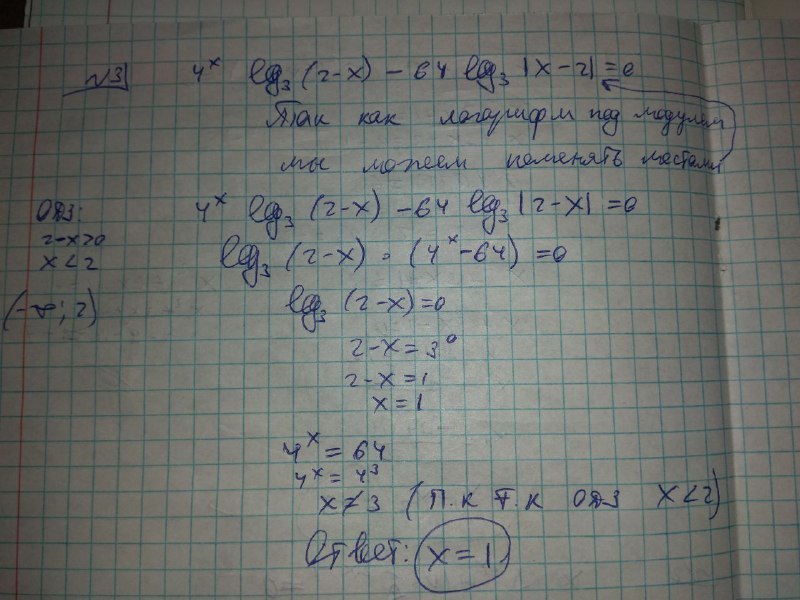 №3
4^x log_3 (2-x) - 64 log_3 |x-2| = 0
Так как логарифм под модулем
мы можем поменять местами
ОДЗ:
2-x>0
x<2
(-∞; 2)
4^x log_3 (2-x) - 64 log_3 |2-x| = 0
log_3 (2-x) · (4^x - 64) = 0
log_3 (2-x) = 0
2-x = 3^0
2-x = 1
x = 1
4^x = 64
4^x = 4^3
x ≠ 3 (П.К Т.К ОДЗ x<2)
Ответ: x = 1